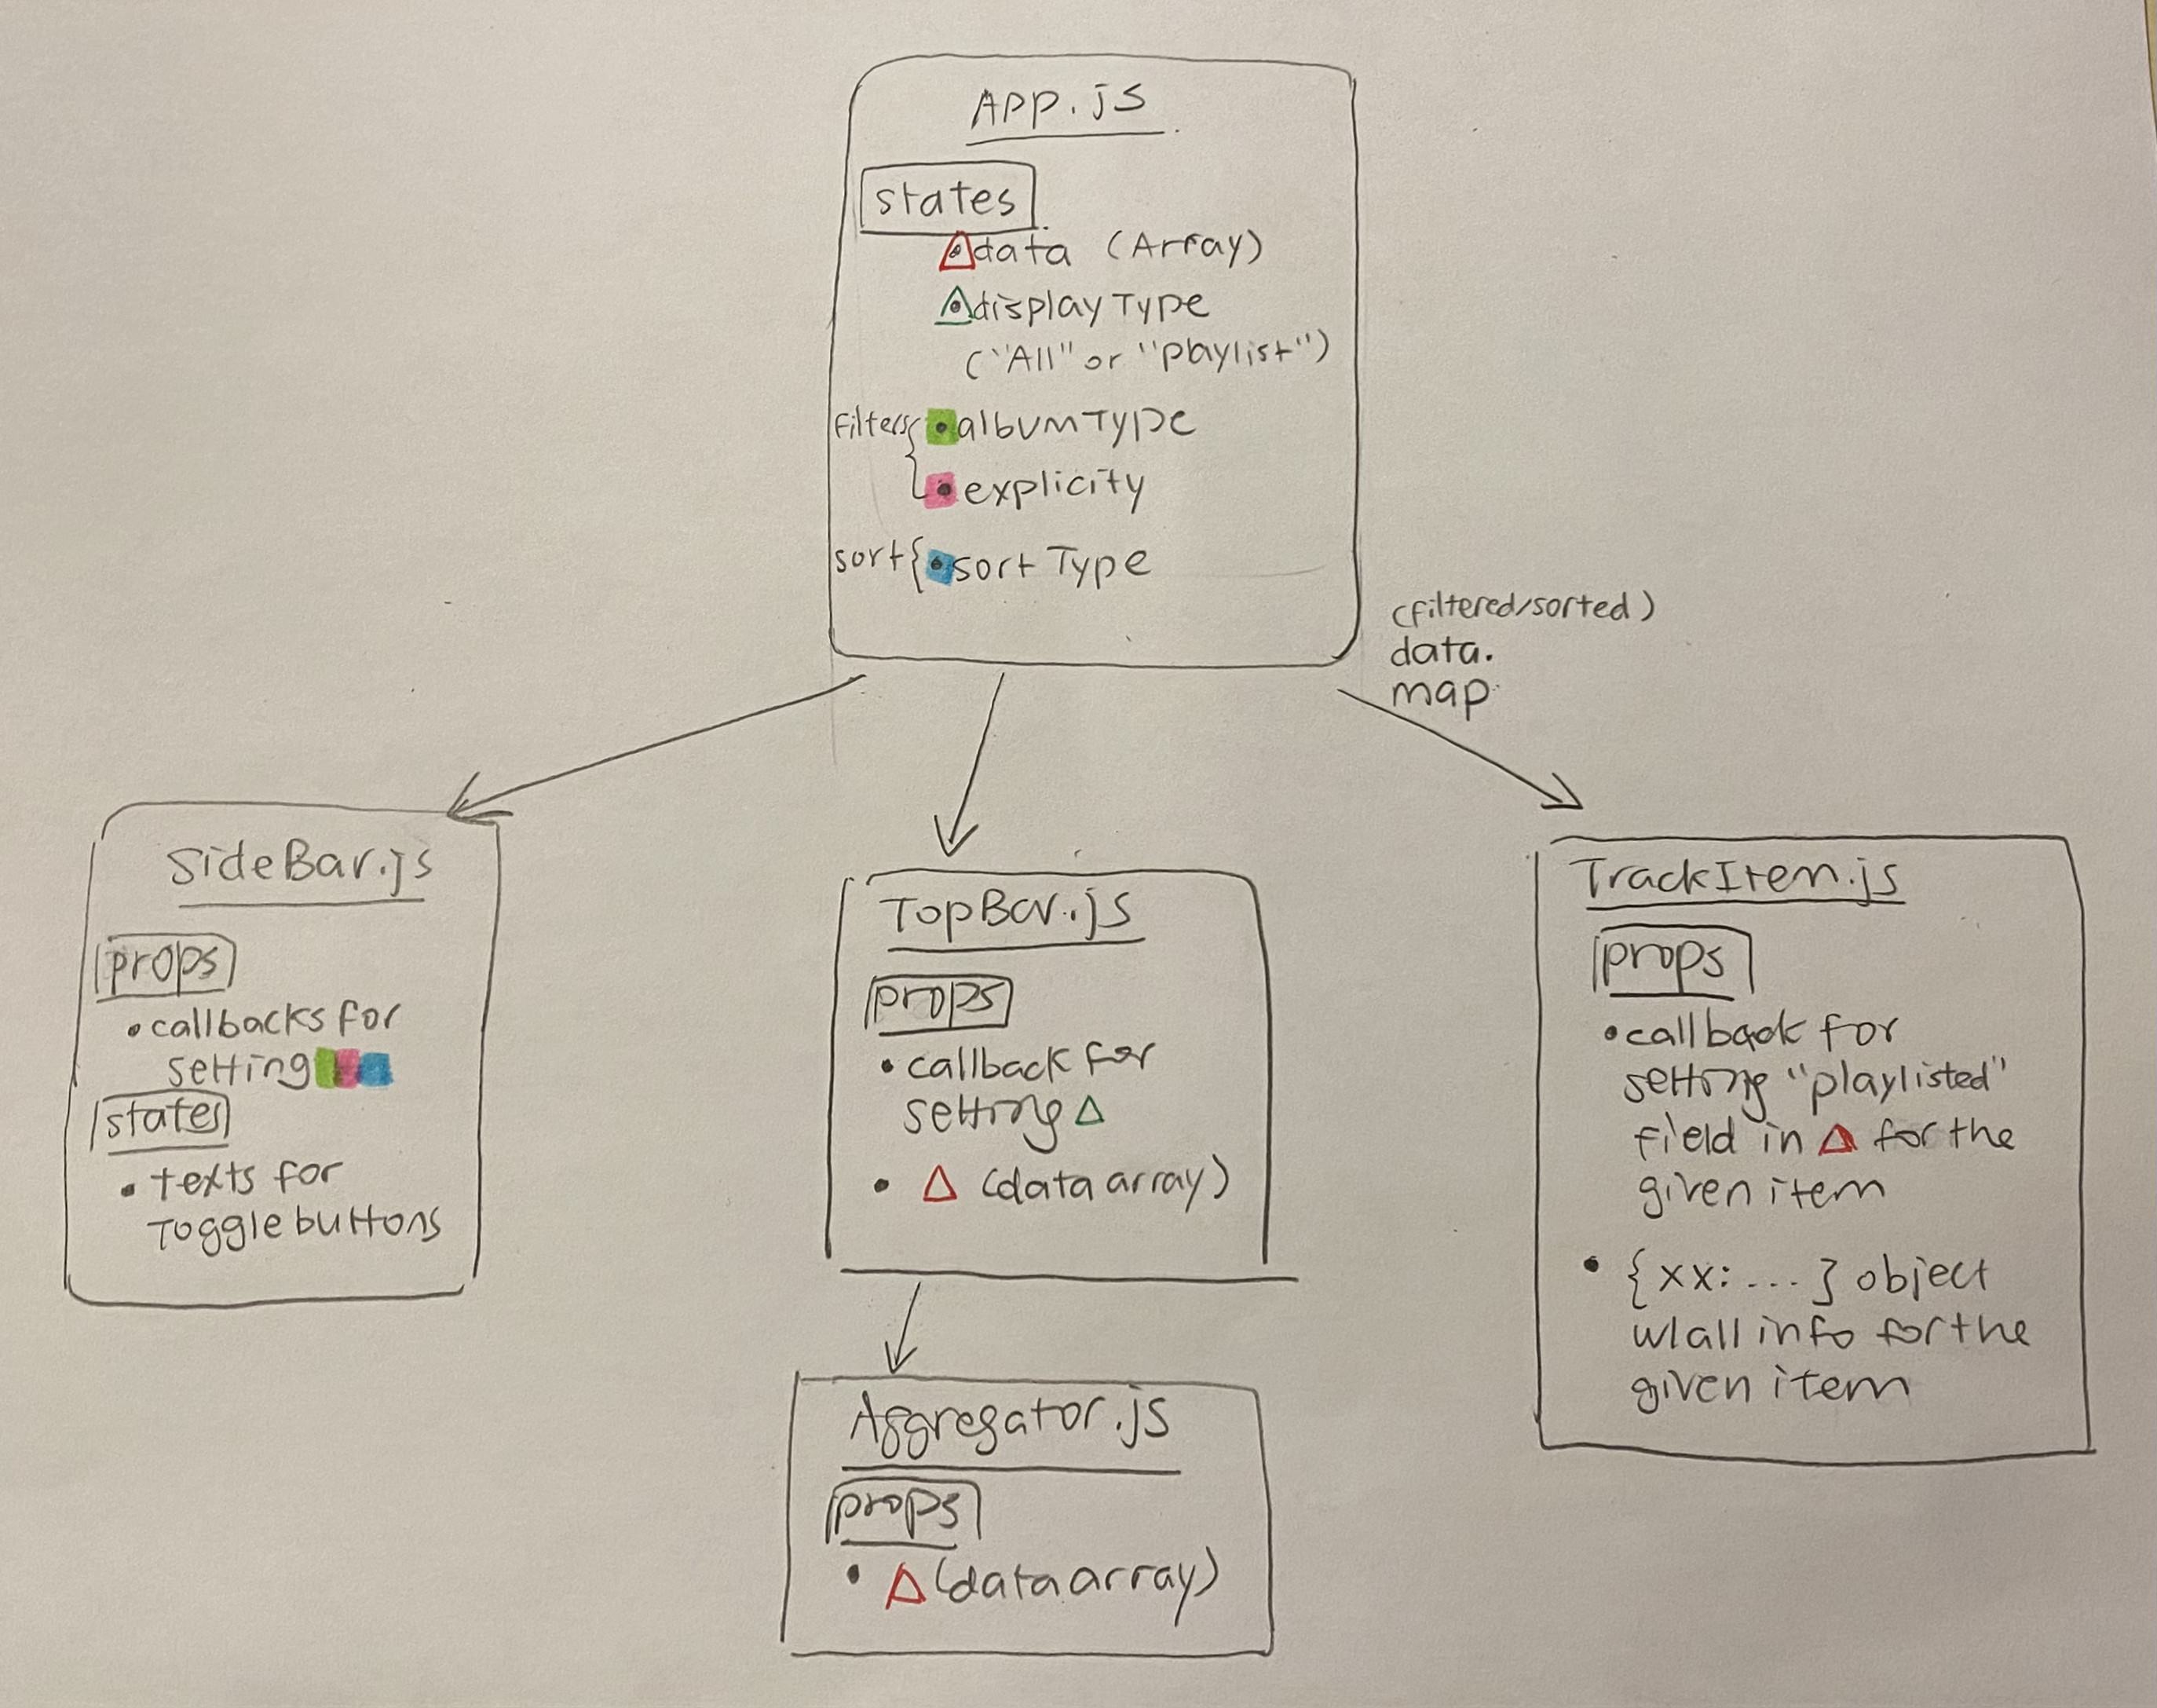 App.js
states
data (Array)
displayType
("All" or "playlist")
filters{ albumType
explicity
sort{ sortType
(filtered/sorted)
data.
map
SideBar.js
props
callbacks for
setting
states
texts for
Toggle buttons
TopBar.js
props
callback for
setting
(data array)
Aggregator.js
props
(data array)
TrackItem.js
props
callback for
setting "playlisted"
field in for the
given item
{xx: ... } object
w/all info for the
given item